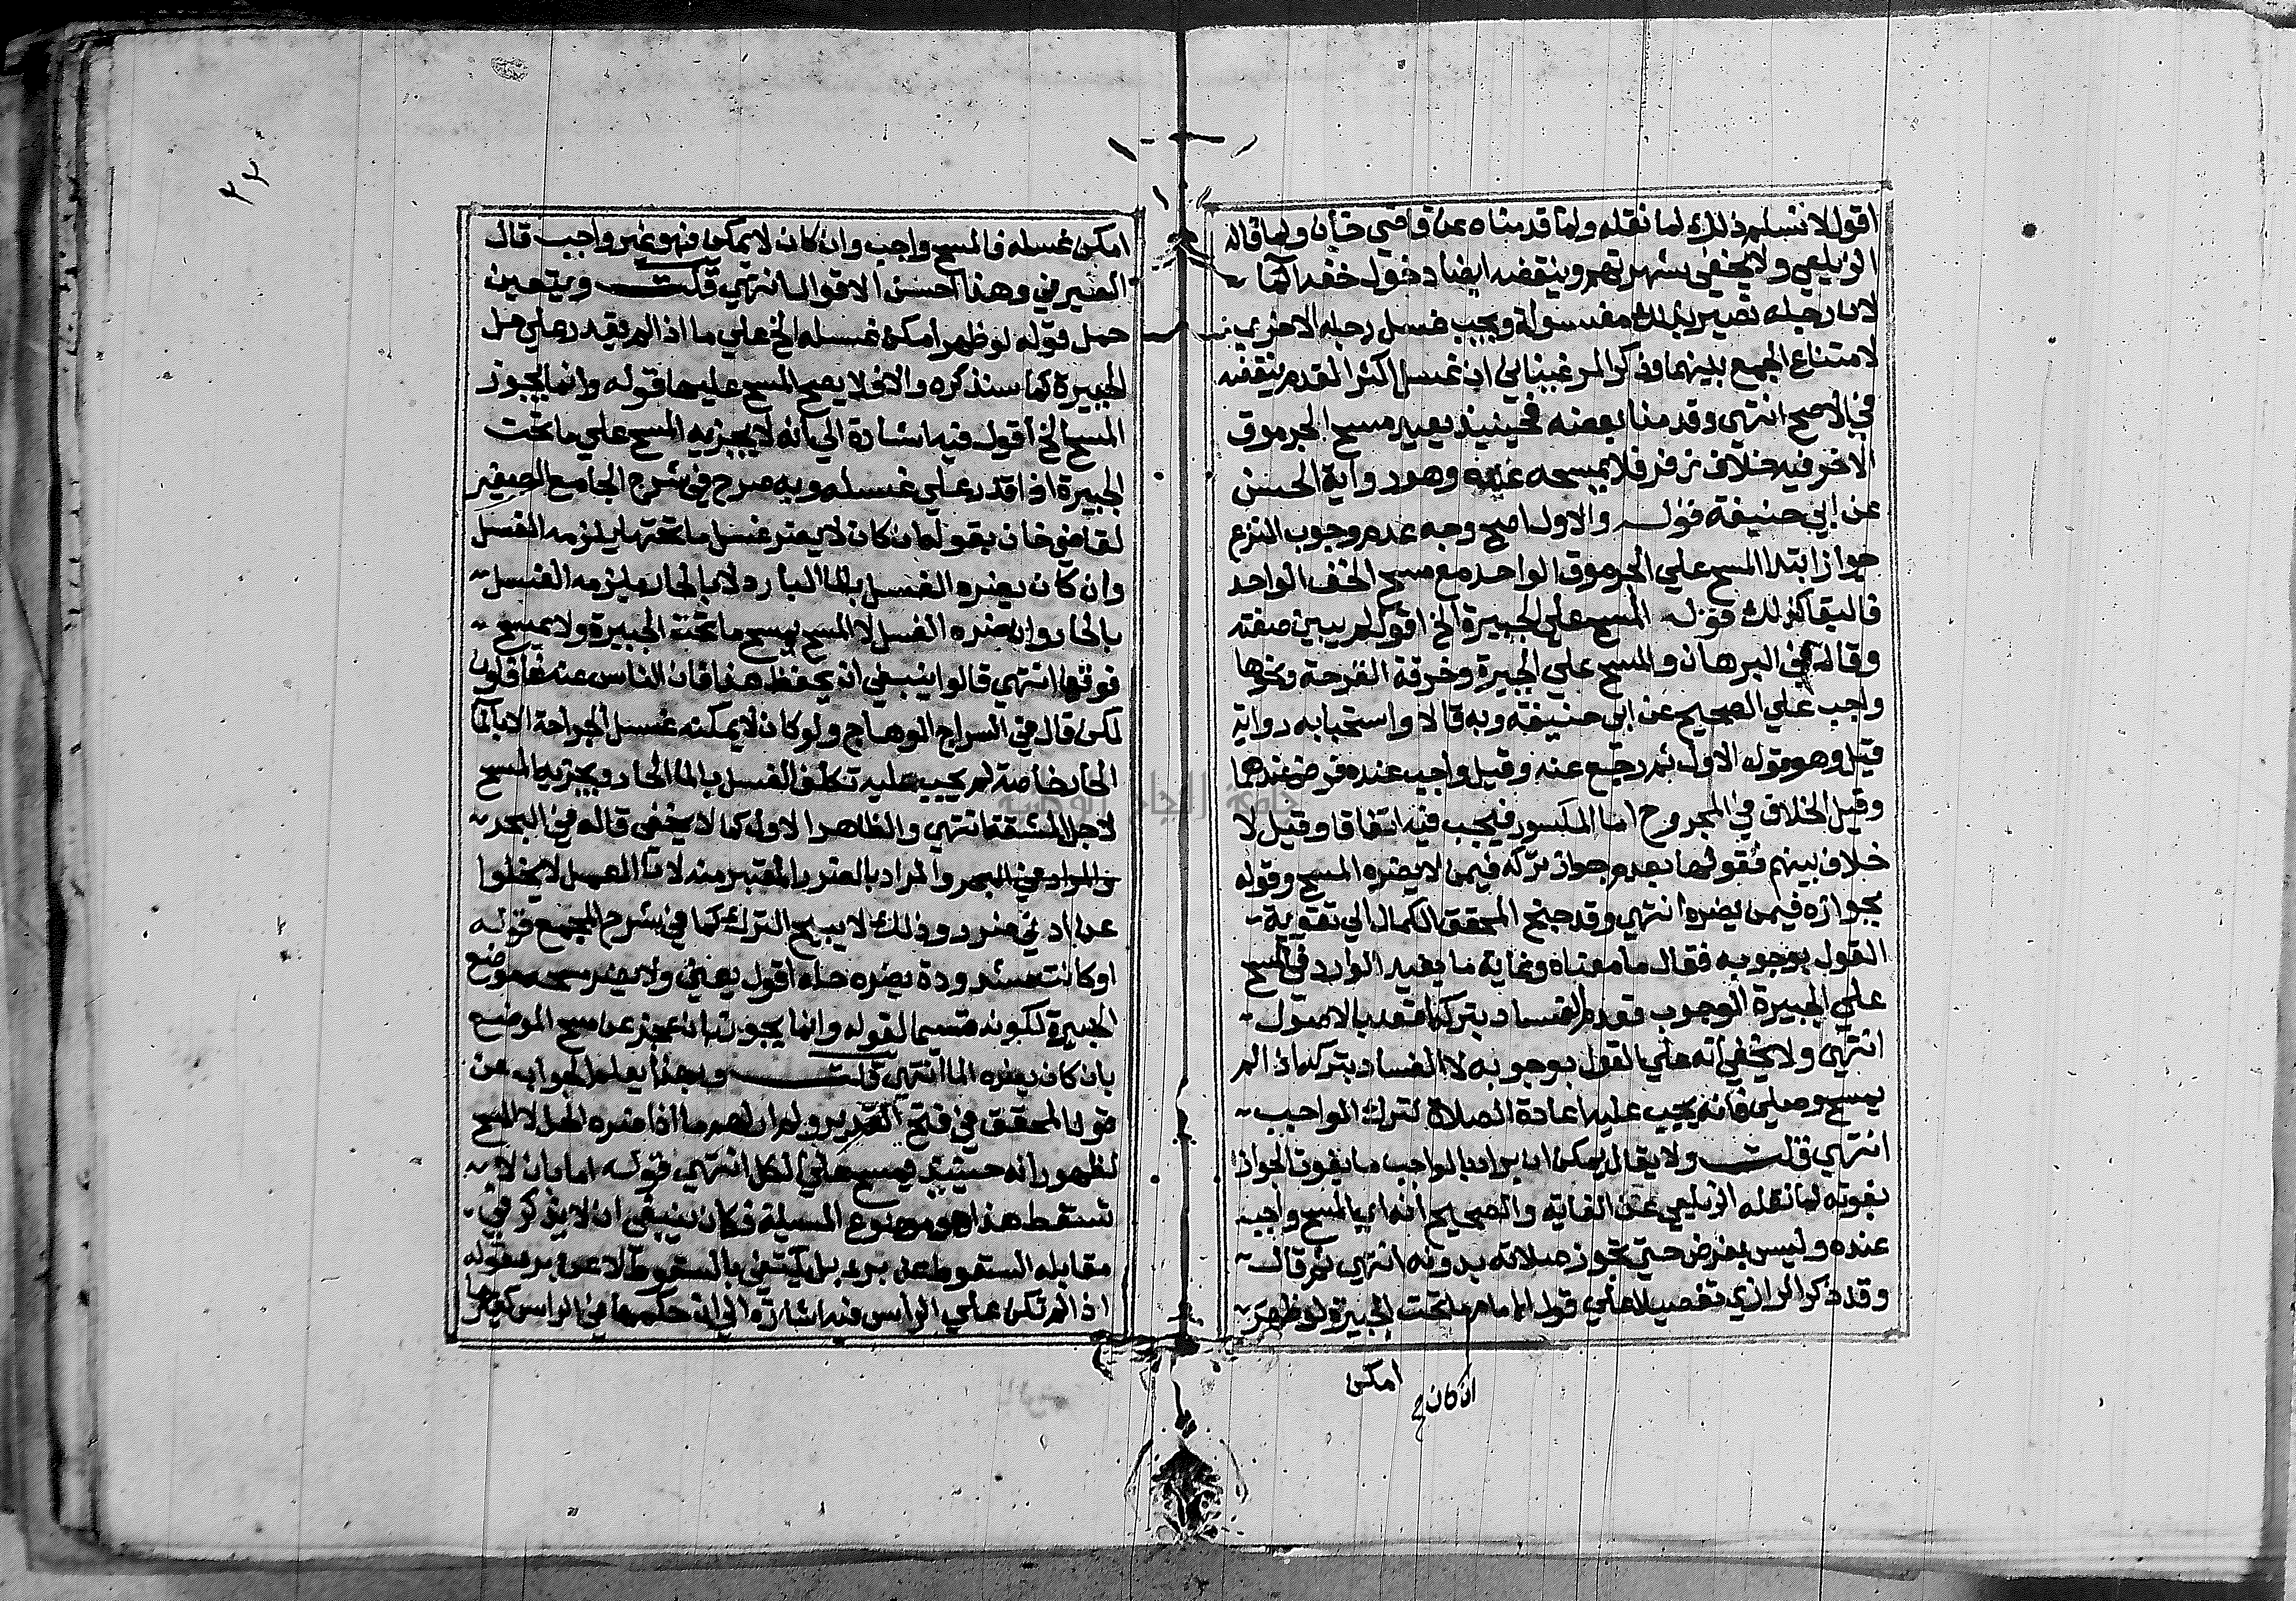 اقول لا نسلم ذلك لما نقله ولما قدمناه عن قاضي خان ولما قاله
الزيلعي ولا يخفى شهرتهم وينقضه ايضا دخول خفه الما
لان رجله تصير بذلك مغسولة ويجب غسل رجله الاخرى
لامتناع الجمع بينهما وذكر المرغيناني ان غسل اكثر القدم ينقضه
في الاصح انتهى وقدمنا بعضه فحينيذ يعيد مسح الجرموق
الاخر فيه خلاف زفر فلا يمسحه عنده وهو رواية الحسن
عن ابي حنيفة قوله والاول اصح وجه عدم وجوب النزع
جواز ابتدا المسح علي الجرموق الواحد مع مسح الخف الواحد
فالبقا كذلك قوله المسح علي الجبيرة الخ اقول لم يبين صفته
وقال في البرهان والمسح علي الجبيرة وخرقة القرحة ونحوها
واجب علي الصحيح عن ابي حنيفة وبه قالا واستحبابه رواية
قيل وهو قوله الاول ثم رجع عنه وقيل واجب عنده فرض عندهما
وقيل الخلاف في المجروح اما المكسور فيجب فيه اتفاقا وقيل لا
خلاف بينهم فقولهما بعدم جواز تركه فيمن لا يضره المسح وقوله
بجوازه فيمن يضره انتهى وقد جنح المحقق الكمال الي تقوية
القول بوجوبه فقال ما معناه وغاية ما يفيد الوارد في المسح
علي الجبيرة الوجوب فعدم الفساد بتركه اقعد بالاصول
انتهى ولا يخفي انه علي القول بوجوبه لا الفساد بتركه اذا لم
يمسح وصلي فانه يجب عليه اعادة الصلاة لترك الواجب
انتهي قلت ولا يقال يمكن ان يراد بالواجب ما يفوت الجواز
بفوته لما نقله الزيلعي عن الغاية والصحيح انه اي المسح واجب
عنده وليس بفرض حتي تجوز صلاته بدونه انتهى ثم قال
وقد ذكر الرازي تفصيلا علي قول الامام ما تحت الجبيرة لو ظهر
امكن
ان كان
امكن غسله فالمسح واجب وان كان لا يمكن فهو غير واجب قال
الصيرفي وهذا احسن الاقوال انتهي قلت ويتعين
حمل قوله لو ظهر امكن غسله الخ علي ما اذا لم يقدر علي حل
الجبيرة كما سنذكره والا فلا يصح المسح عليها قوله وانما يجوز
المسح الخ اقول فيه اشارة الي انه لا يجزيه المسح علي ما تحت
الجبيرة اذا قدر علي غسله وبه صرح في شرح الجامع الصغير
لقاضي خان بقوله ان كان لا يضر غسل ما تحتها يلزمه الغسل
وان كان يضره الغسل بالما البارد لا بالحار يلزمه الغسل
بالحار وان ضره الغسل لا المسح يمسح ما تحت الجبيرة ولا يمسح
فوقها انتهي قالوا ينبغي ان يحفظ هذا فان الناس عنه غافلون
لكن قال في السراج الوهاج ولو كان لا يمكنه غسل الجراحة الا بالما
الحار خاصة لم يجب عليه تكلف الغسل بالما الحار ويجزيه المسح
لاجل المشقة انتهي والظاهر الاول كما لا يخفى قاله في البحر
والمراد في البحر والمراد بالضرر المعتبر منه لان العمل لا يخلوا
عن ادني ضرر وذلك لا يبيح الترك كما في شرح المجمع قوله
او كانت مشدودة يضره حله اقول يعني ولا يضر مسح موضع
الجبيرة لكونه قسيما لقوله وانما يجوز ان عجز عن مسح الموضع
بان كان يضره الما انتهي قلت وبهذا يعلم الجواب عن
قول المحقق في فتح القدير ولم ار لهم ما اذا ضره الحل لا المسح
لظهور انه حينيذ يمسح علي الكل انتهي قوله اما بان لا
تسقط هذا هو موضوع المسيلة فكان ينبغي ان لا يذكر في
مقابله السقوط عن برء بل يكتفي بالسقوط لا عن برء قوله
اذا لم تكن علي الراس فيه اشارة الي ان حكمها في الراس كغيرها